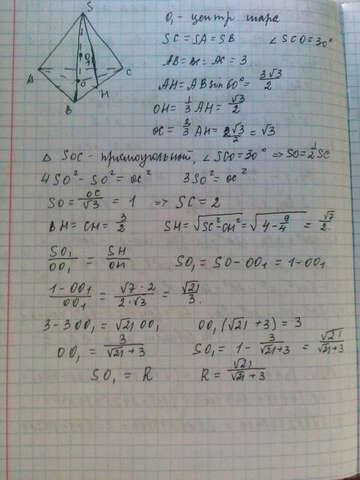 S
O₁
A
O
C
B
H
O₁ - центр шара
SC = SA = SB ∠SCO = 30°
AB = BC = AC = 3
AH = AB sin 60° = 3√3/2
OH = 1/3 AH = √3/2
OC = 2/3 AH = 2√3/2 = √3
Δ SOC - прямоугольный, ∠SCO = 30° => SO = 1/2 SC
4SO² - SO² = OC² 3SO² = OC²
SO = OC/√3 = 1 => SC = 2
BH = CH = 3/2 SH = √(SC² - CH²) = √(4 - 9/4) = √7/2
SO₁/OO₁ = SH/OH SO₁ = SO - OO₁ = 1 - OO₁
(1 - OO₁)/OO₁ = √7·2/2·√3 = √21/3.
3 - 3OO₁ = √21 OO₁ OO₁(√21 + 3) = 3
OO₁ = 3/(√21 + 3) SO₁ = 1 - 3/(√21 + 3) = √21/(√21 + 3)
SO₁ = R R = √21/(√21 + 3)